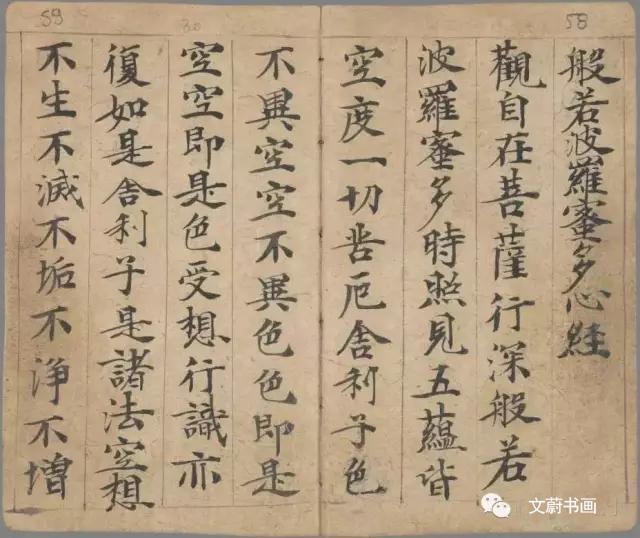 58
般若波羅蜜多心経
觀自在菩薩行深般若
波羅蜜多時照見五蘊皆
空度一切苦厄舍利子色
59
30
不異空空不異色色即是
空空即是色受想行識亦
復如是舍利子是諸法空想
不生不滅不垢不浄不增
文蔚书画